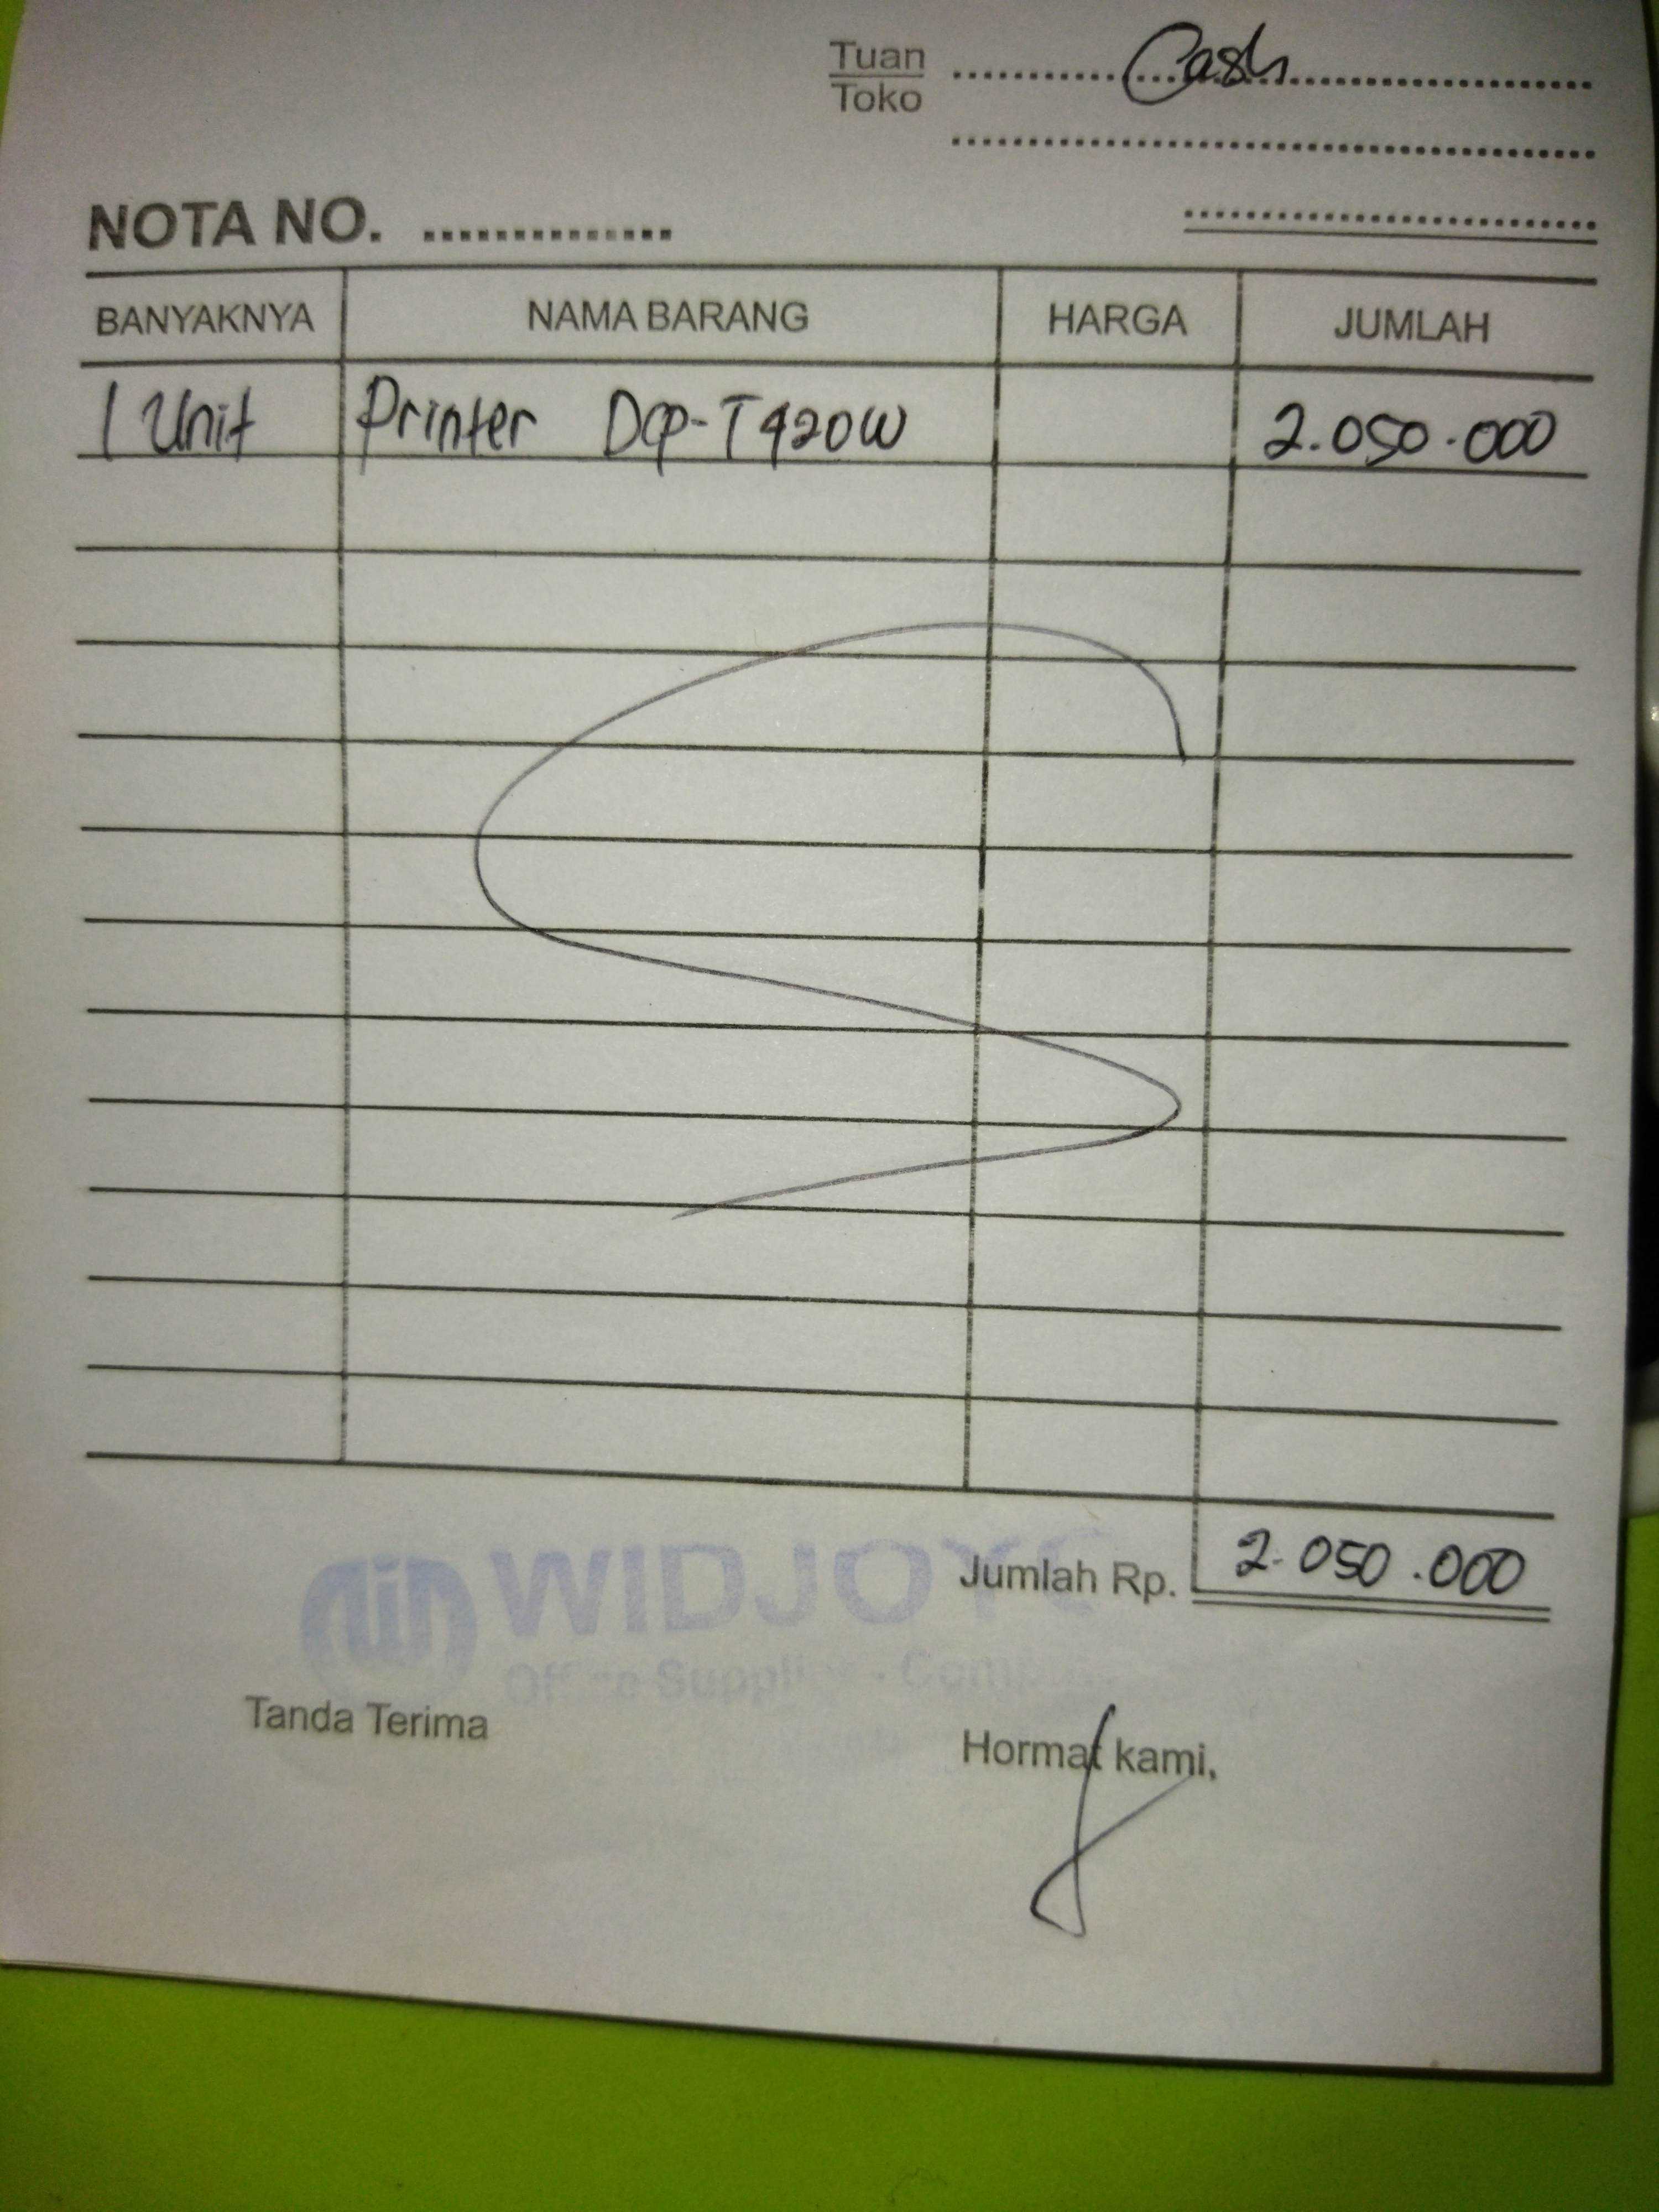 Tuan Cash
Toko
NOTA NO. ..............
BANYAKNYA NAMA BARANG HARGA JUMLAH
1 Unit Printer DCP-T420W 2.050.000
Jumlah Rp. 2.050.000
WIDJOYO
Office Supplies - Comp
Tanda Terima
Hormat kami,